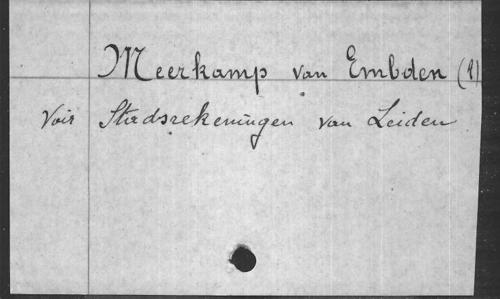 Meerkamp van Embden
Voir Stadsrekeningen van Leiden